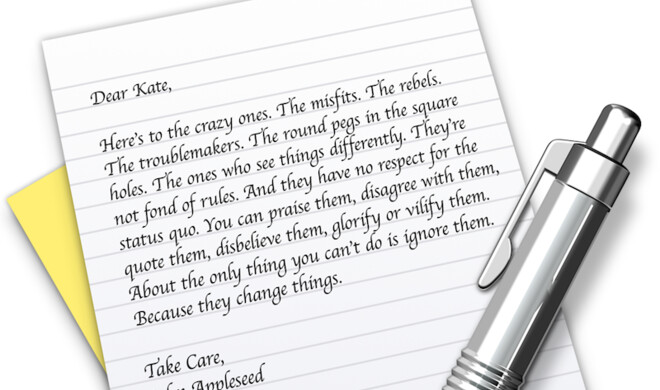 Dear Kate,
Here's to the crazy ones. The misfits. The rebels.
The troublemakers. The round pegs in the square
holes. The ones who see things differently. They're
not fond of rules. And they have no respect for the
status quo. You can praise them, disagree with them,
quote them, disbelieve them, glorify or vilify them.
About the only thing you can't do is ignore them.
Because they change things.
Take Care,
Appleseed